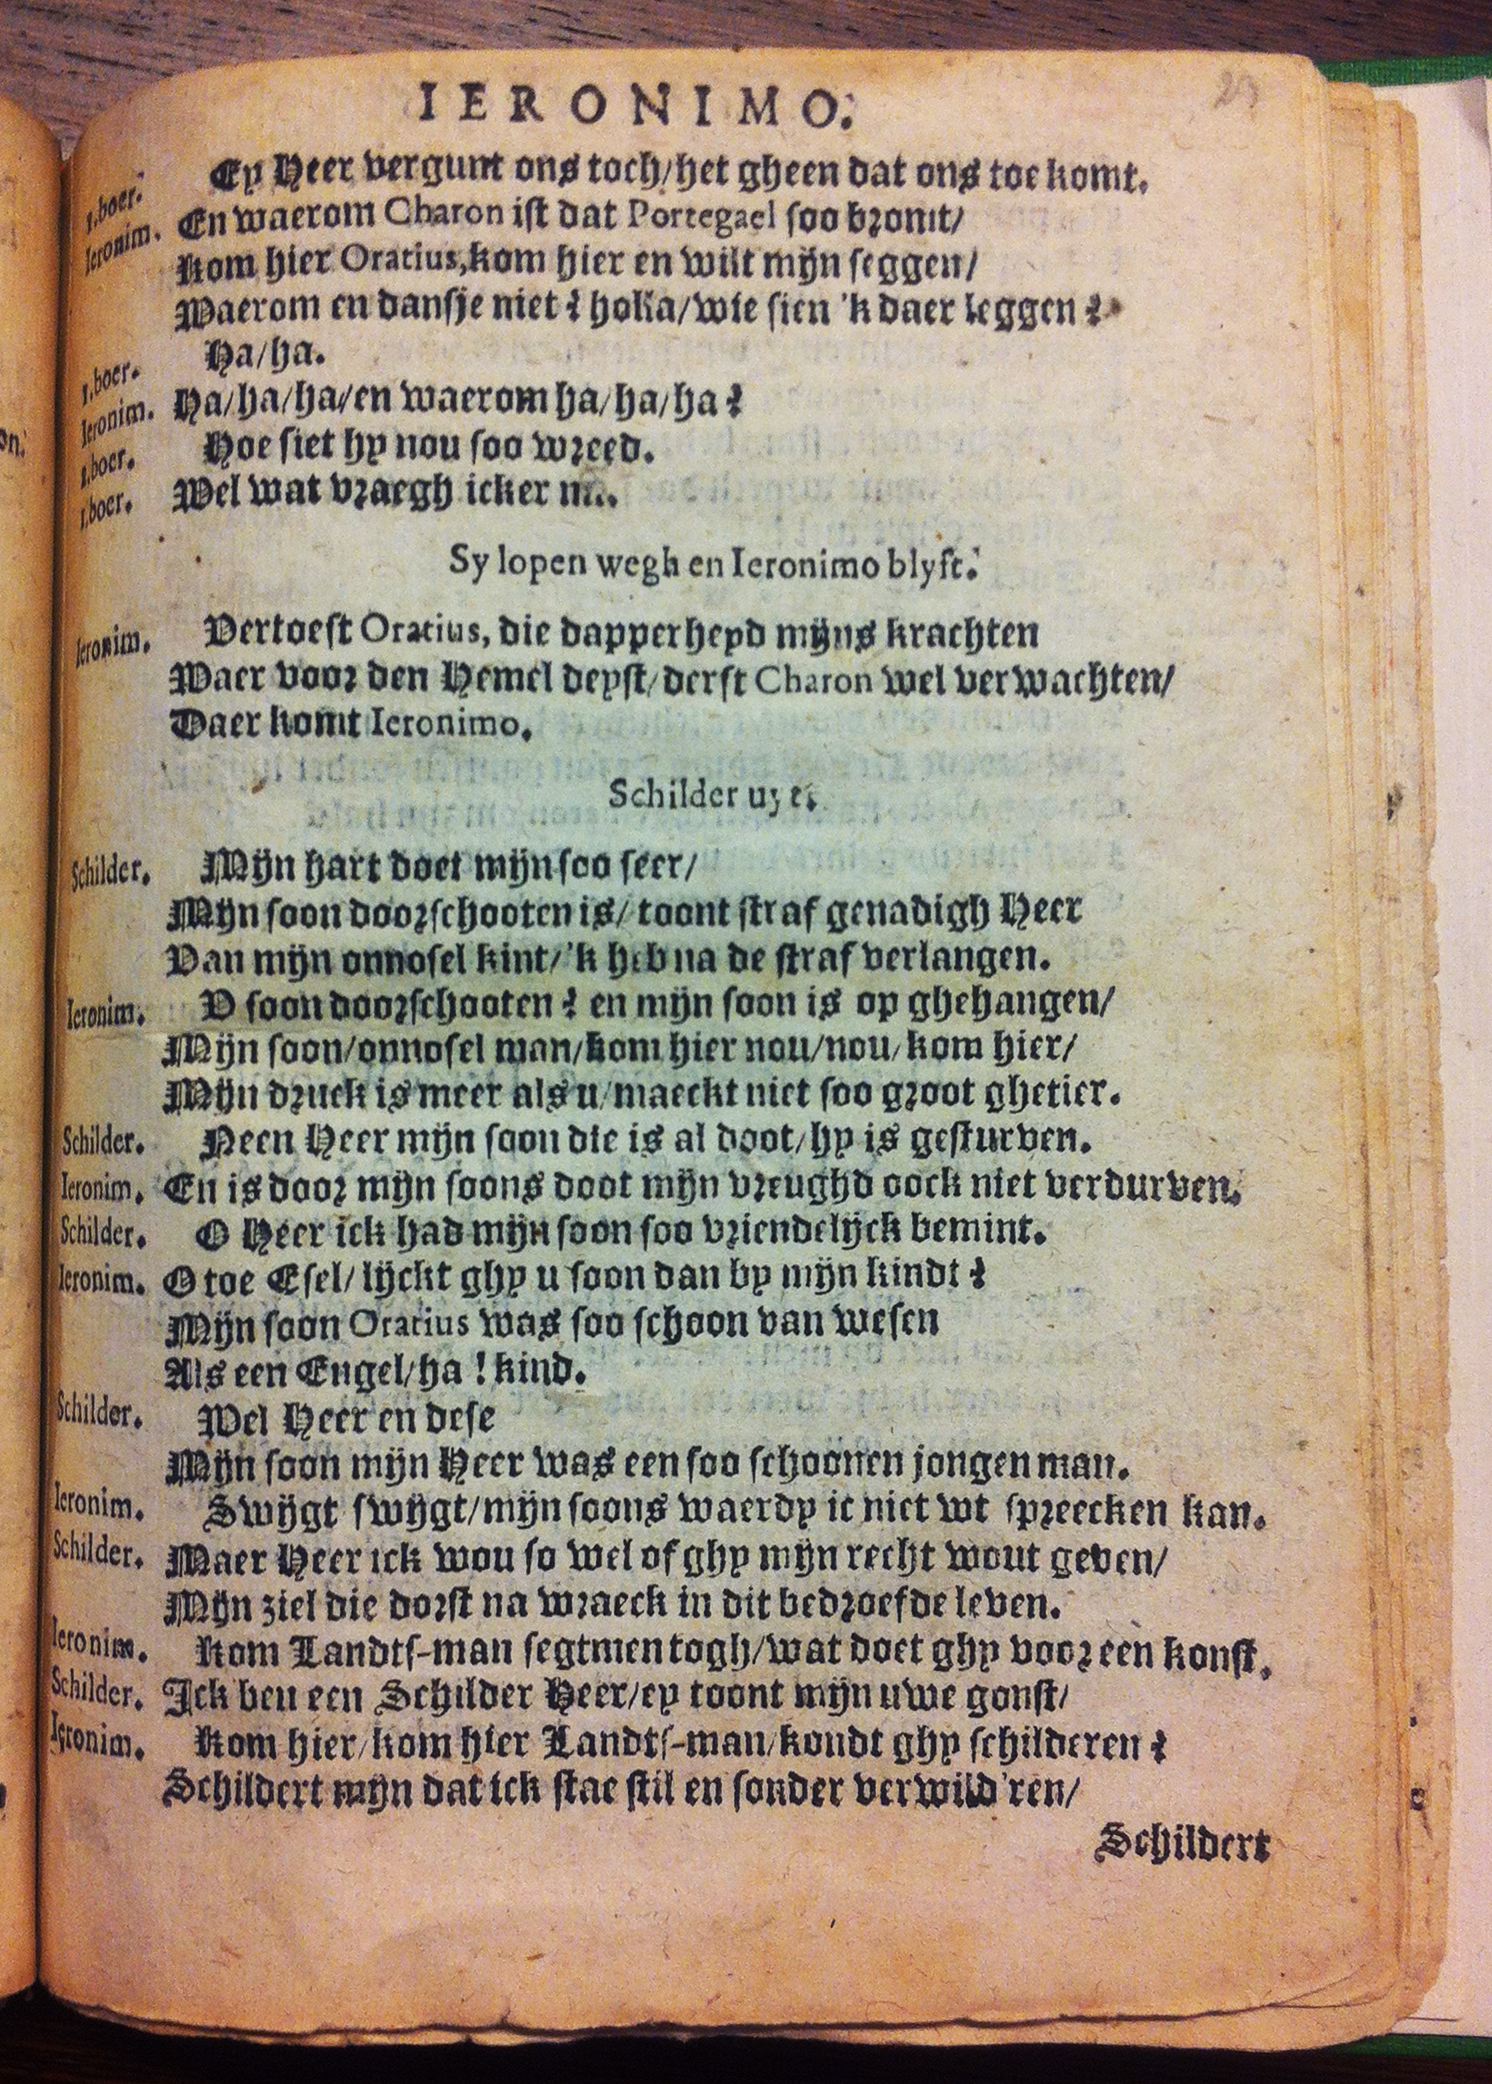 IERONIMO.
23
1.boer. Ey Heer vergunt ons toch/het gheen dat ons toe komt.
Ieronim. En waerom Charon ist dat Portegael soo bromt/
Kom hier Oratius,kom hier en wilt mijn seggen/
Waerom en dansje niet? holla/wie sien 'k daer leggen?
1.boer. Ha/ha.
Ieronim. Ha/ha/ha/en waerom ha/ha/ha?
1.boer. Hoe siet hy nou soo wreed.
1.boer. Wel wat vraegh icker na.
Sy lopen wegh en Ieronimo blyft.
Ieronim. Vertoest Oratius, die dapperheyd mijns krachten
Waer voor den Hemel deyst/derft Charon wel verwachten/
Daer komt Ieronimo.
Schilder uyt.
Schilder. Mijn hart doet mijn soo seer/
Mijn soon doorschooten is/toont straf genadigh Heer
Van mijn onnosel kint/'k heb na de straf verlangen.
Ieronim. V soon doorschooten? en mijn soon is op ghehangen/
Mijn soon/onnosel man/kom hier nou/nou/kom hier/
Mijn druck is meer als u/maeckt niet soo groot ghetier.
Schilder. Neen Heer mijn soon die is al doot/hy is gesturven.
Ieronim. En is door mijn soons doot mijn vreughd oock niet verdurven.
Schilder. O Heer ick had mijn soon soo vriendelijck bemint.
Ieronim. O toe Esel/lijckt ghy u soon dan by mijn kindt?
Mijn soon Oratius was soo schoon van wesen
Als een Engel/ha! kind.
Schilder. Wel Heer en dese
Mijn soon mijn Heer was een soo schoonen jongen man.
Ieronim. Swijgt swijgt/mijn soons waerdy ic niet wt spreecken kan.
Schilder. Maer Heer ick wou so wel of ghy mijn recht wout geven/
Mijn ziel die dorst na wraeck in dit bedroefde leven.
Ieronim. Kom Landts-man segtmen togh/wat doet ghy voor een konst.
Schilder. Ick ben een Schilder Heer/ey toont mijn uwe gonst/
Ieronim. Kom hier/kom hier Landts-man/kondt ghy schilderen?
Schildert mijn dat ick stae stil en sonder verwild'ren/
Schildert